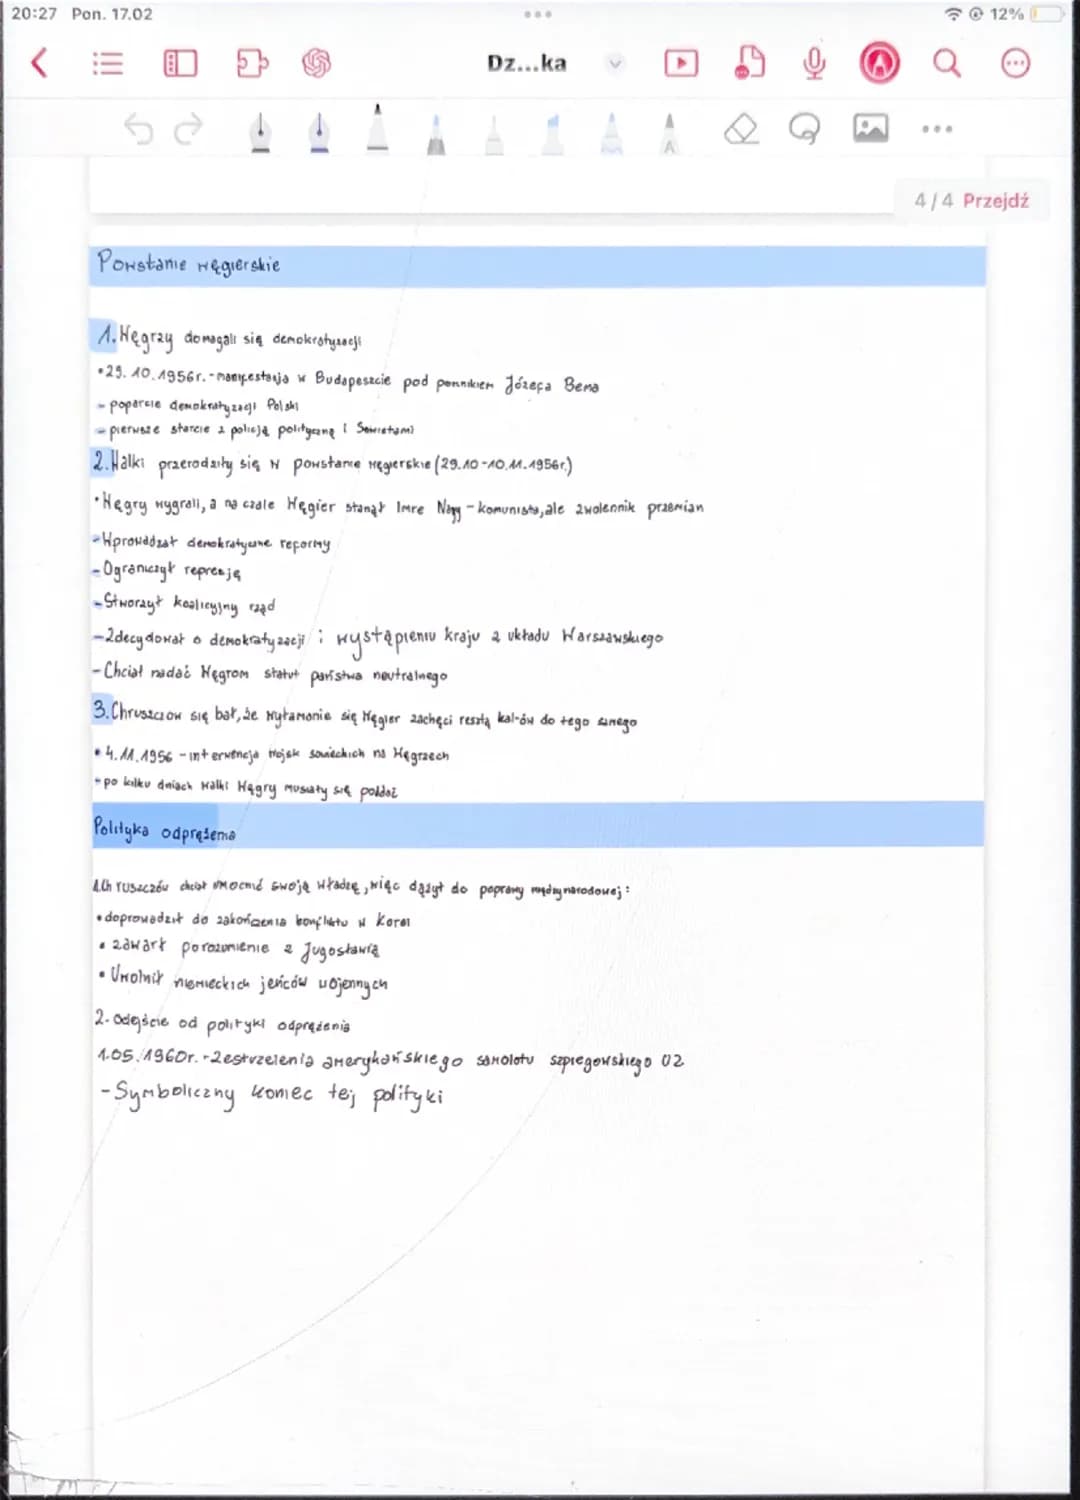 20:27 Pon. 17.02
12%
Dz...ka
4/4 Przejdź
Powstanie węgierskie
1. Węgrzy domagali się demokratyzacji
• 29.10.1956r. - manifestacja w Budapeszcie pod pomnikiem Józefa Bema
- poparcie demokratyzacji Polski
- pierwsze starcie z policją polityczną i Sowietami
2. Walki przerodziły się w powstanie węgierskie (29.10-10.11.1956r.)
• Węgry wygrali, a na czele Węgier stanął Imre Nagy - komunista, ale zwolennik przemian
- Wprowadzał demokratyczne reformy
- Ograniczył represję
- Stworzył koalicyjny rząd
- Zdecydował o demokratyzacji i wystąpieniu kraju z układu Warszawskiego
- Chciał nadać Węgrom statut państwa neutralnego
3. Chruszczow się bał, że wyłamanie się Węgier zachęci resztą kal-ów do tego samego
• 4.11.1956 - interwencja wojsk sowieckich na Węgrzech
- po kilku dniach walki Węgry musiały się poddać
Polityka odprężenia
1. Chruszczów chciał umocnić swoją władzę, więc dążył do poprawy międzynarodowej:
• doprowadził do zakończenia konfliktu w Korei
• zawarł porozumienie z Jugosławią
• Uwolnił niemieckich jeńców wojennych
2. Odejście od polityki odprężenia
1.05.1960r. - Zestrzelenia amerykańskiego samolotu szpiegowskiego U2
- Symboliczny koniec tej polityki